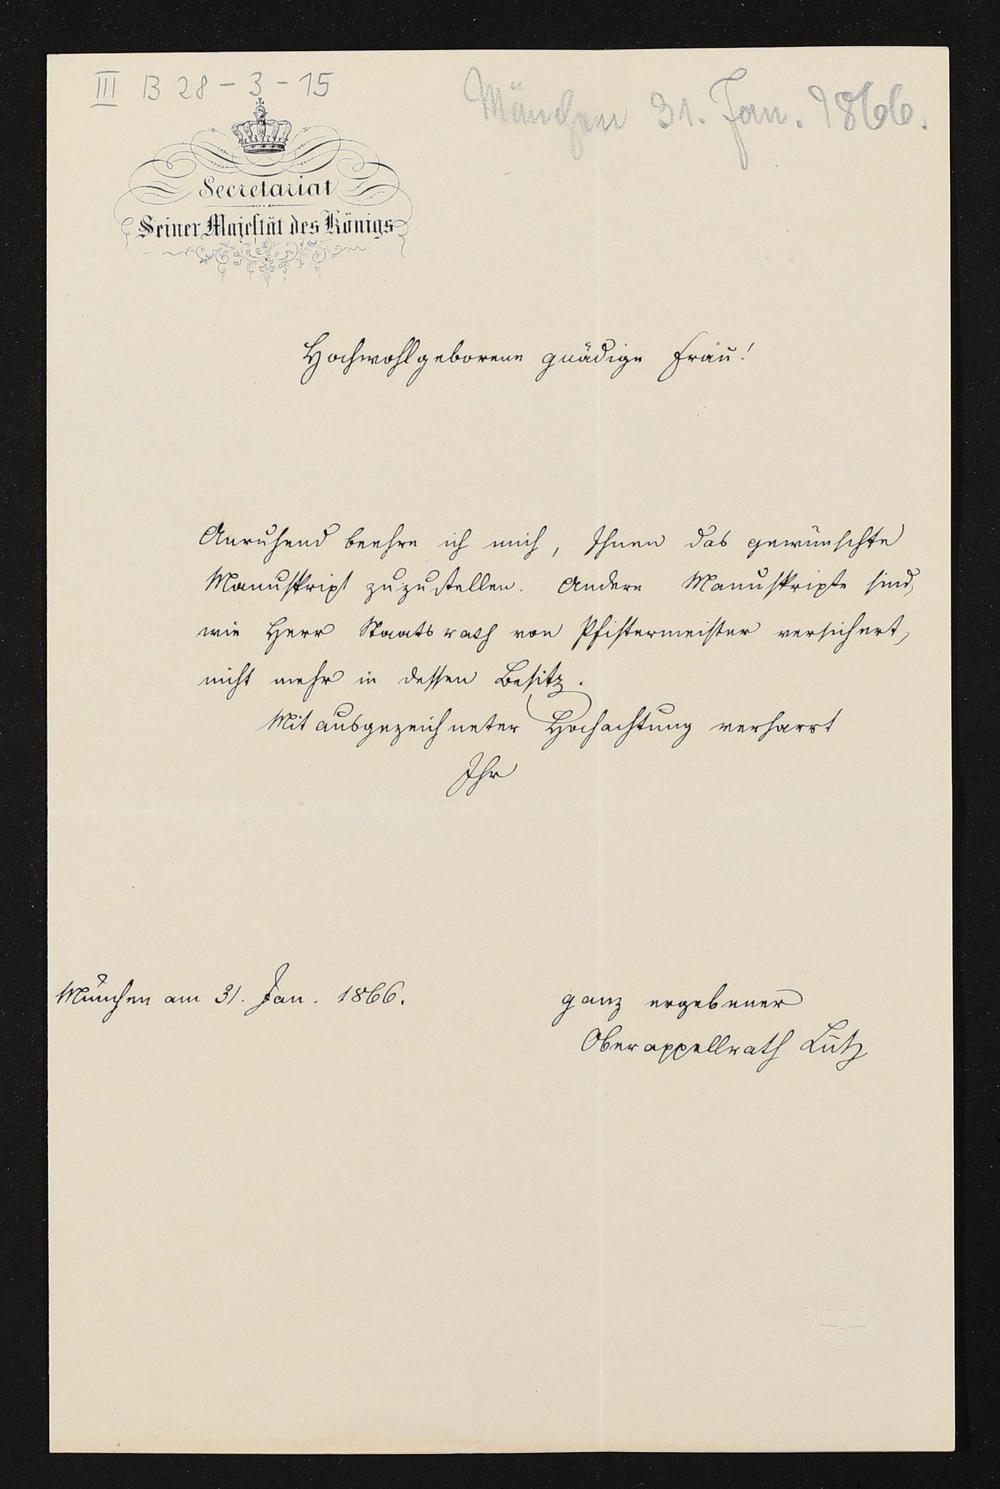 III B 28 - 3 - 15
München 31. Jan. 1866.
Secretariat
Seiner Majestät des Königs
Hochwohlgeborene gnädige Frau!
Anruhend beehre ich mich, Ihnen das gewünschte
Manuskript zuzustellen. Andere Manuskripte sind,
wie Herr Staatsrath von Pfistermeister versichert,
nicht mehr in dessen Besitz.
Mit ausgezeichneter Hochachtung verharrt
Ihr
München am 31. Jan. 1866.
ganz ergebener
Oberappellrath Lutz